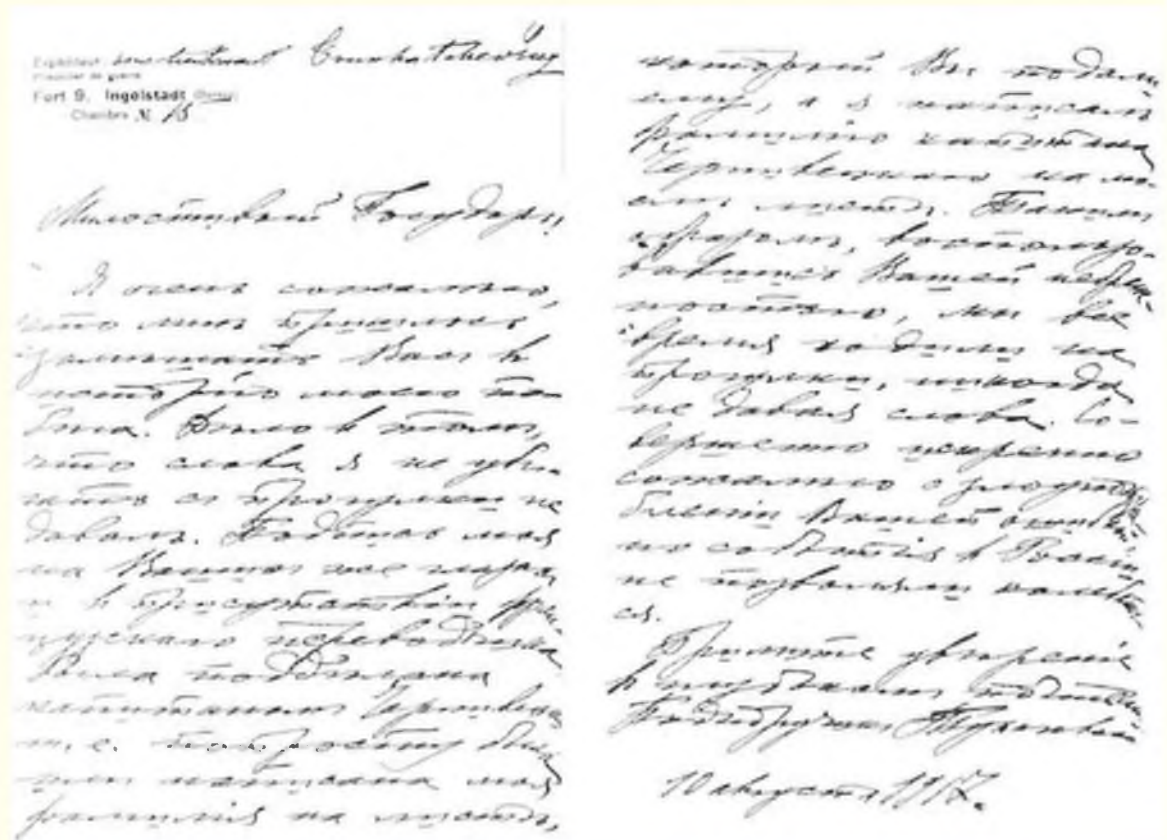 Expéditeur: sous-lieutenant
Prisonnier de guerre
Fort 9, Ingolstadt
Chambre № 15
Милостивый Государь,
Я очень сожалѣю,
что мнѣ пришлось
замѣшать Васъ в
исторію моего по-
бѣга. Дѣло в томъ,
что слова я не убѣ-
гать с прогулки не
давалъ. Подпись моя
на Вашихъ же глазах
и в присутствіи фран-
цузскаго переводчика
была поддѣлана
капитаномъ
т. е. попросту
имъ написана моя
фамилія на листѣ,
который Вы подали
ему, а я написалъ
фамилію капитана
Чернявскаго на мо-
емъ листѣ. Такимъ
образомъ, воспользо-
вавшись Вашей небреж-
ностью, мы все
время ходили на
прогулки, никогда
не давая слова. Со-
вершенно искренно
сожалѣю о злоупотре-
бленіи Вашей ошибкой,
но событія в Россіи
не позволяли колебать-
ся.
Примите увѣреніе
в глубокомъ почтеніи
Подпоручикъ Тухачевскій
10 августа 1917.